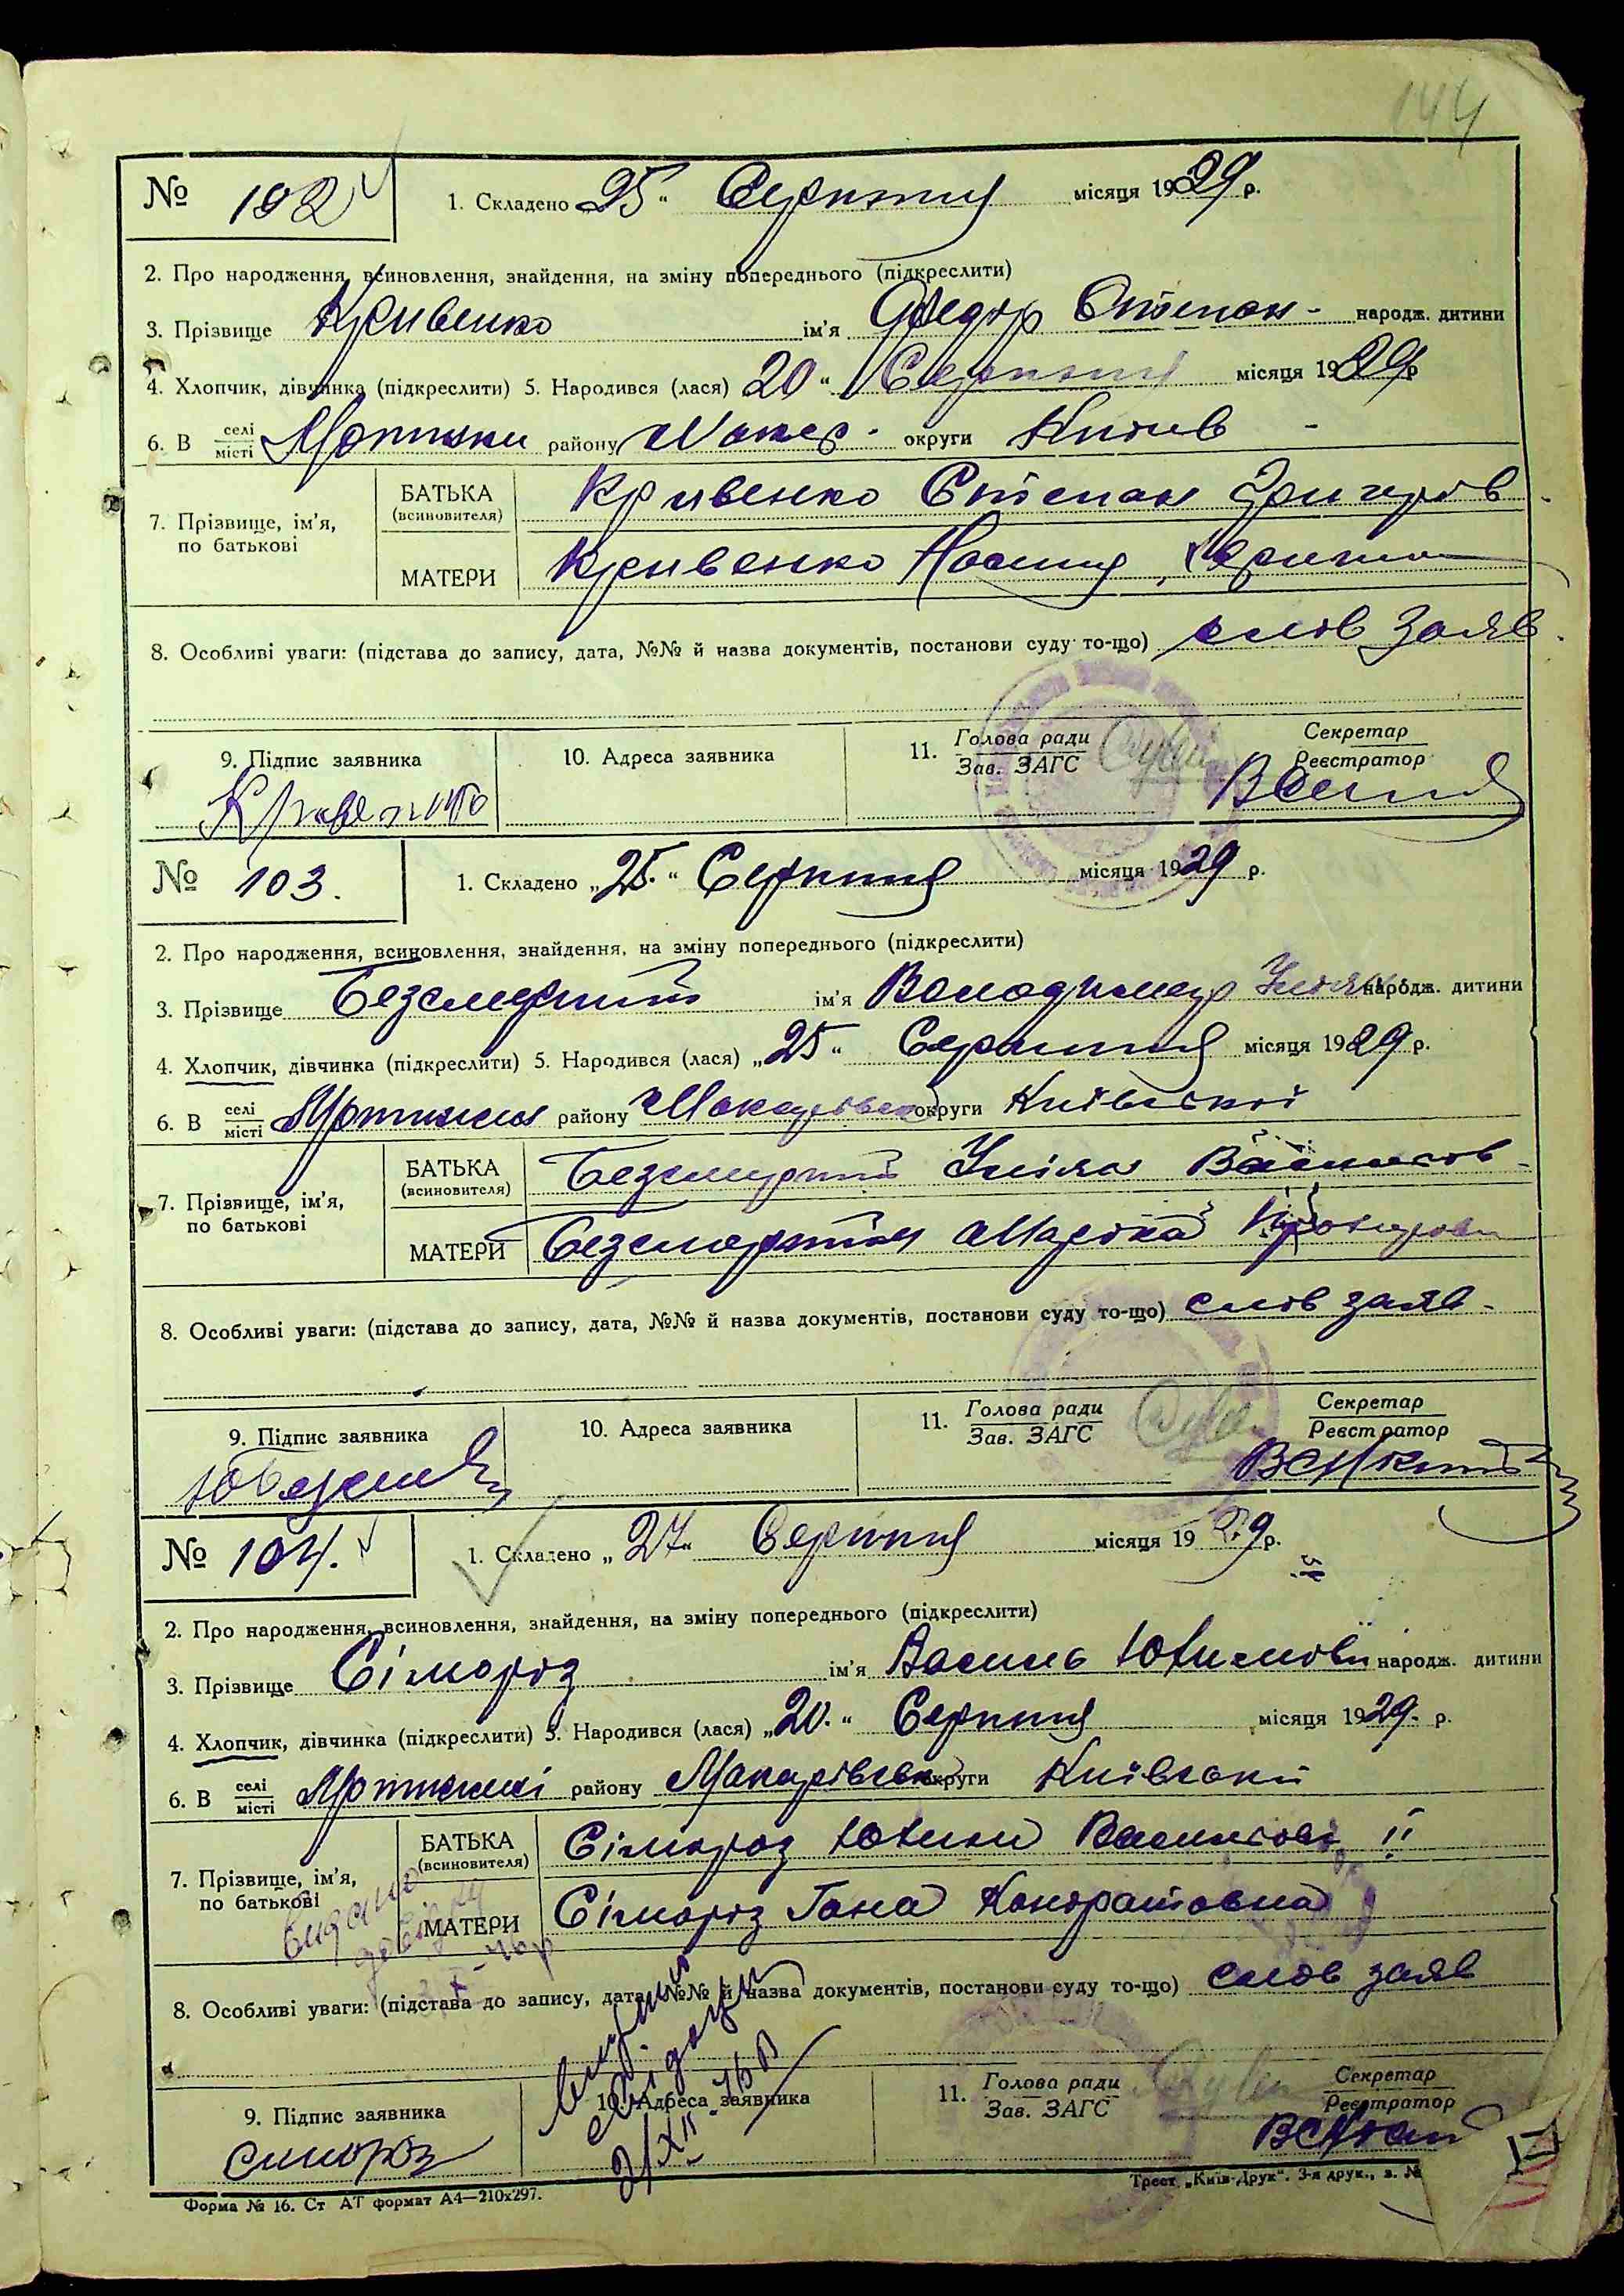 144
№ 102
1. Складено „25“ Серпня місяця 1929 р.
2. Про народження, всиновлення, знайдення, на зміну попереднього (підкреслити)
3. Прізвище Кривенко ім'я Федір Степан- народж. дитини
4. Хлопчик, дівчинка (підкреслити) 5. Народився (лася) 20 “ Серпня місяця 1929 р
6. В селі/місті Мотижин району Макар- округи Київ -
БАТЬКА (всиновителя) Кривенко Степан Григоров
7. Прізвище, ім'я, по батькові
МАТЕРИ Кривенко
8. Особливі уваги: (підстава до запису, дата, №№ й назва документів, постанови суду то-що) слов заяв.
9. Підпис заявника 10. Адреса заявника 11. Голова ради Зав. ЗАГС Секретар Реєстратор
№ 103.
1. Складено „25.“ Серпня місяця 1929 р.
2. Про народження, всиновлення, знайдення, на зміну попереднього (підкреслити)
3. Прізвище Безсмертній ім'я Володимер народж. дитини
4. Хлопчик, дівчинка (підкреслити) 5. Народився (лася) „25“ Серпня місяця 1929 р.
6. В селі/місті Мотижин району Макарівськ округи Київської
БАТЬКА (всиновителя) Безсмертній Улян Васильов-
7. Прізвище, ім'я, по батькові
МАТЕРИ Безсмертня
8. Особливі уваги: (підстава до запису, дата, №№ й назва документів, постанови суду то-що) слов заяв-
9. Підпис заявника 10. Адреса заявника 11. Голова ради Зав. ЗАГС Секретар Реєстратор
№ 104.
1. Складено „27“ Серпня місяця 1929 р.
2. Про народження, всиновлення, знайдення, на зміну попереднього (підкреслити)
3. Прізвище Сімороз ім'я Василь Юхимови народж. дитини
4. Хлопчик, дівчинка (підкреслити) 5. Народився (лася) „20.“ Серпня місяця 1929. р.
6. В селі/місті Мотижині району Макарівськ округи Київської
БАТЬКА (всиновителя) Сімороз Юхим Васильов
7. Прізвище, ім'я, по батькові
МАТЕРИ Сімороз Гана Кондратовна
видано довідку
8. Особливі уваги: (підстава до запису, дата, №№ й назва документів, постанови суду то-що) слов заяв
9. Підпис заявника 10. Адреса заявника 11. Голова ради Зав. ЗАГС Секретар Реєстратор
Симороз
Форма № 16. Ст АТ формат А4—210х297.
Трест „Київ-Друк“. 3-я друк., з. №